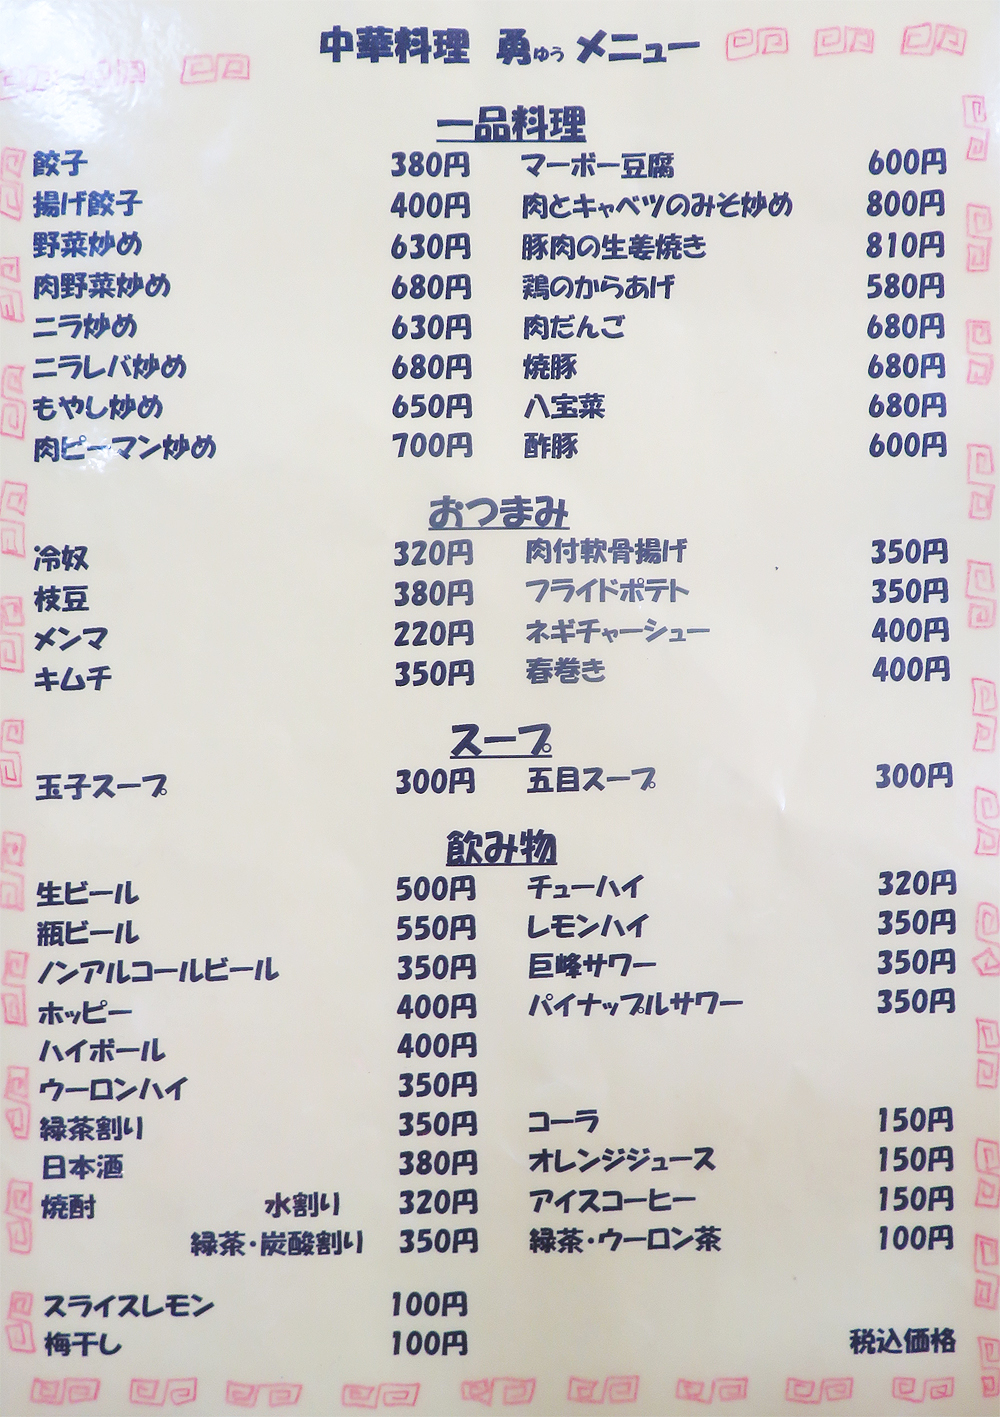 中華料理 勇ゆう メニュー
一品料理
餃子 380円 マーボー豆腐 600円
揚げ餃子 400円 肉とキャベツのみそ炒め 800円
野菜炒め 630円 豚肉の生姜焼き 810円
肉野菜炒め 680円 鶏のからあげ 580円
ニラ炒め 630円 肉だんご 680円
ニラレバ炒め 680円 焼豚 680円
もやし炒め 650円 八宝菜 680円
肉ピーマン炒め 700円 酢豚 600円
おつまみ
冷奴 320円 肉付軟骨揚げ 350円
枝豆 380円 フライドポテト 350円
メンマ 220円 ネギチャーシュー 400円
キムチ 350円 春巻き 400円
スープ
玉子スープ 300円 五目スープ 300円
飲み物
生ビール 500円 チューハイ 320円
瓶ビール 550円 レモンハイ 350円
ノンアルコールビール 350円 巨峰サワー 350円
ホッピー 400円 パイナップルサワー 350円
ハイボール 400円
ウーロンハイ 350円
緑茶割り 350円 コーラ 150円
日本酒 380円 オレンジジュース 150円
焼酎 水割り 320円 アイスコーヒー 150円
緑茶・炭酸割り 350円 緑茶・ウーロン茶 100円
スライスレモン 100円
梅干し 100円 税込価格